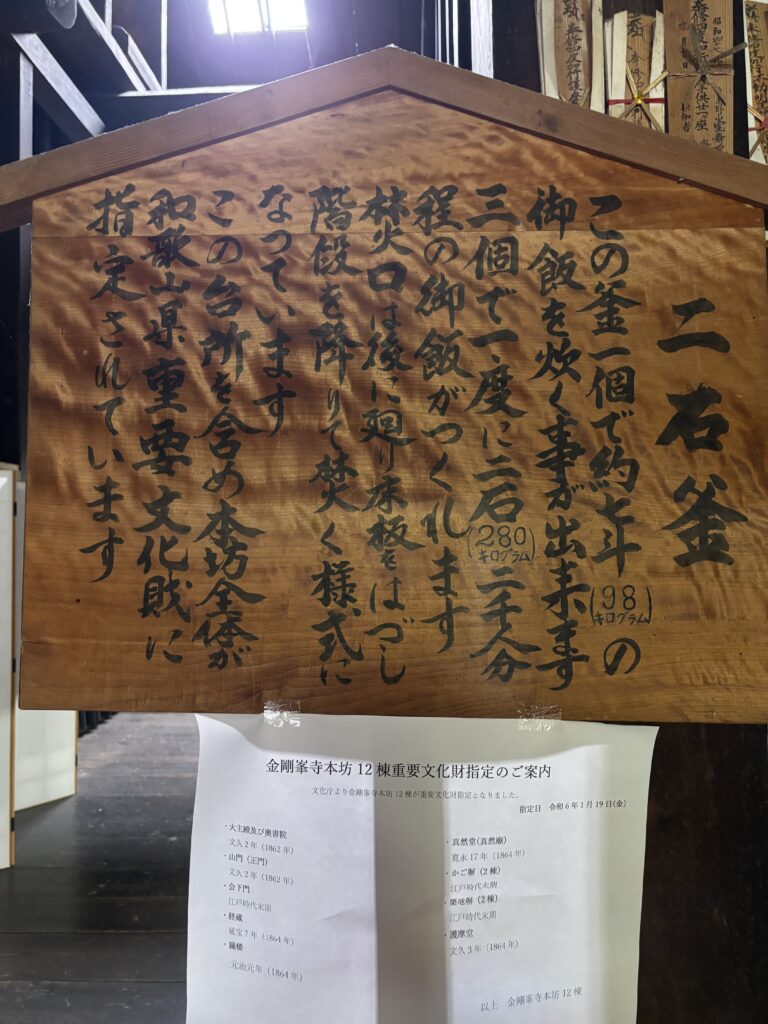 二石釜
この釜一個で約七斗(98キログラム)の
御飯を炊く事が出来ます
三個で一度に二石(280キログラム)二千人分
程の御飯がつくれます
焚口は後に廻り床板をはづし
階段を降りて焚く様式に
なっています
この台所を含め本坊全体が
和歌山県重要文化財に
指定されています
金剛峯寺本坊 12 棟重要文化財指定のご案内
文化庁より金剛峯寺本坊 12 棟が重要文化財指定となりました。
指定日 令和 6 年 1 月 19 日(金)
・大主殿及び奥書院
文久 2 年（1862 年）
・山門（正門）
文久 2 年（1862 年）
・会下門
江戸時代末期
・経蔵
延宝 7 年（1864 年）
・鐘楼
元治元年（1864 年）
・真然堂(真然廟)
寛永 17 年（1864 年）
・かご塀（2 棟）
江戸時代末期
・築地塀（2 棟）
江戸時代末期
・護摩堂
文久 3 年（1864 年）
以上 金剛峯寺本坊 12 棟